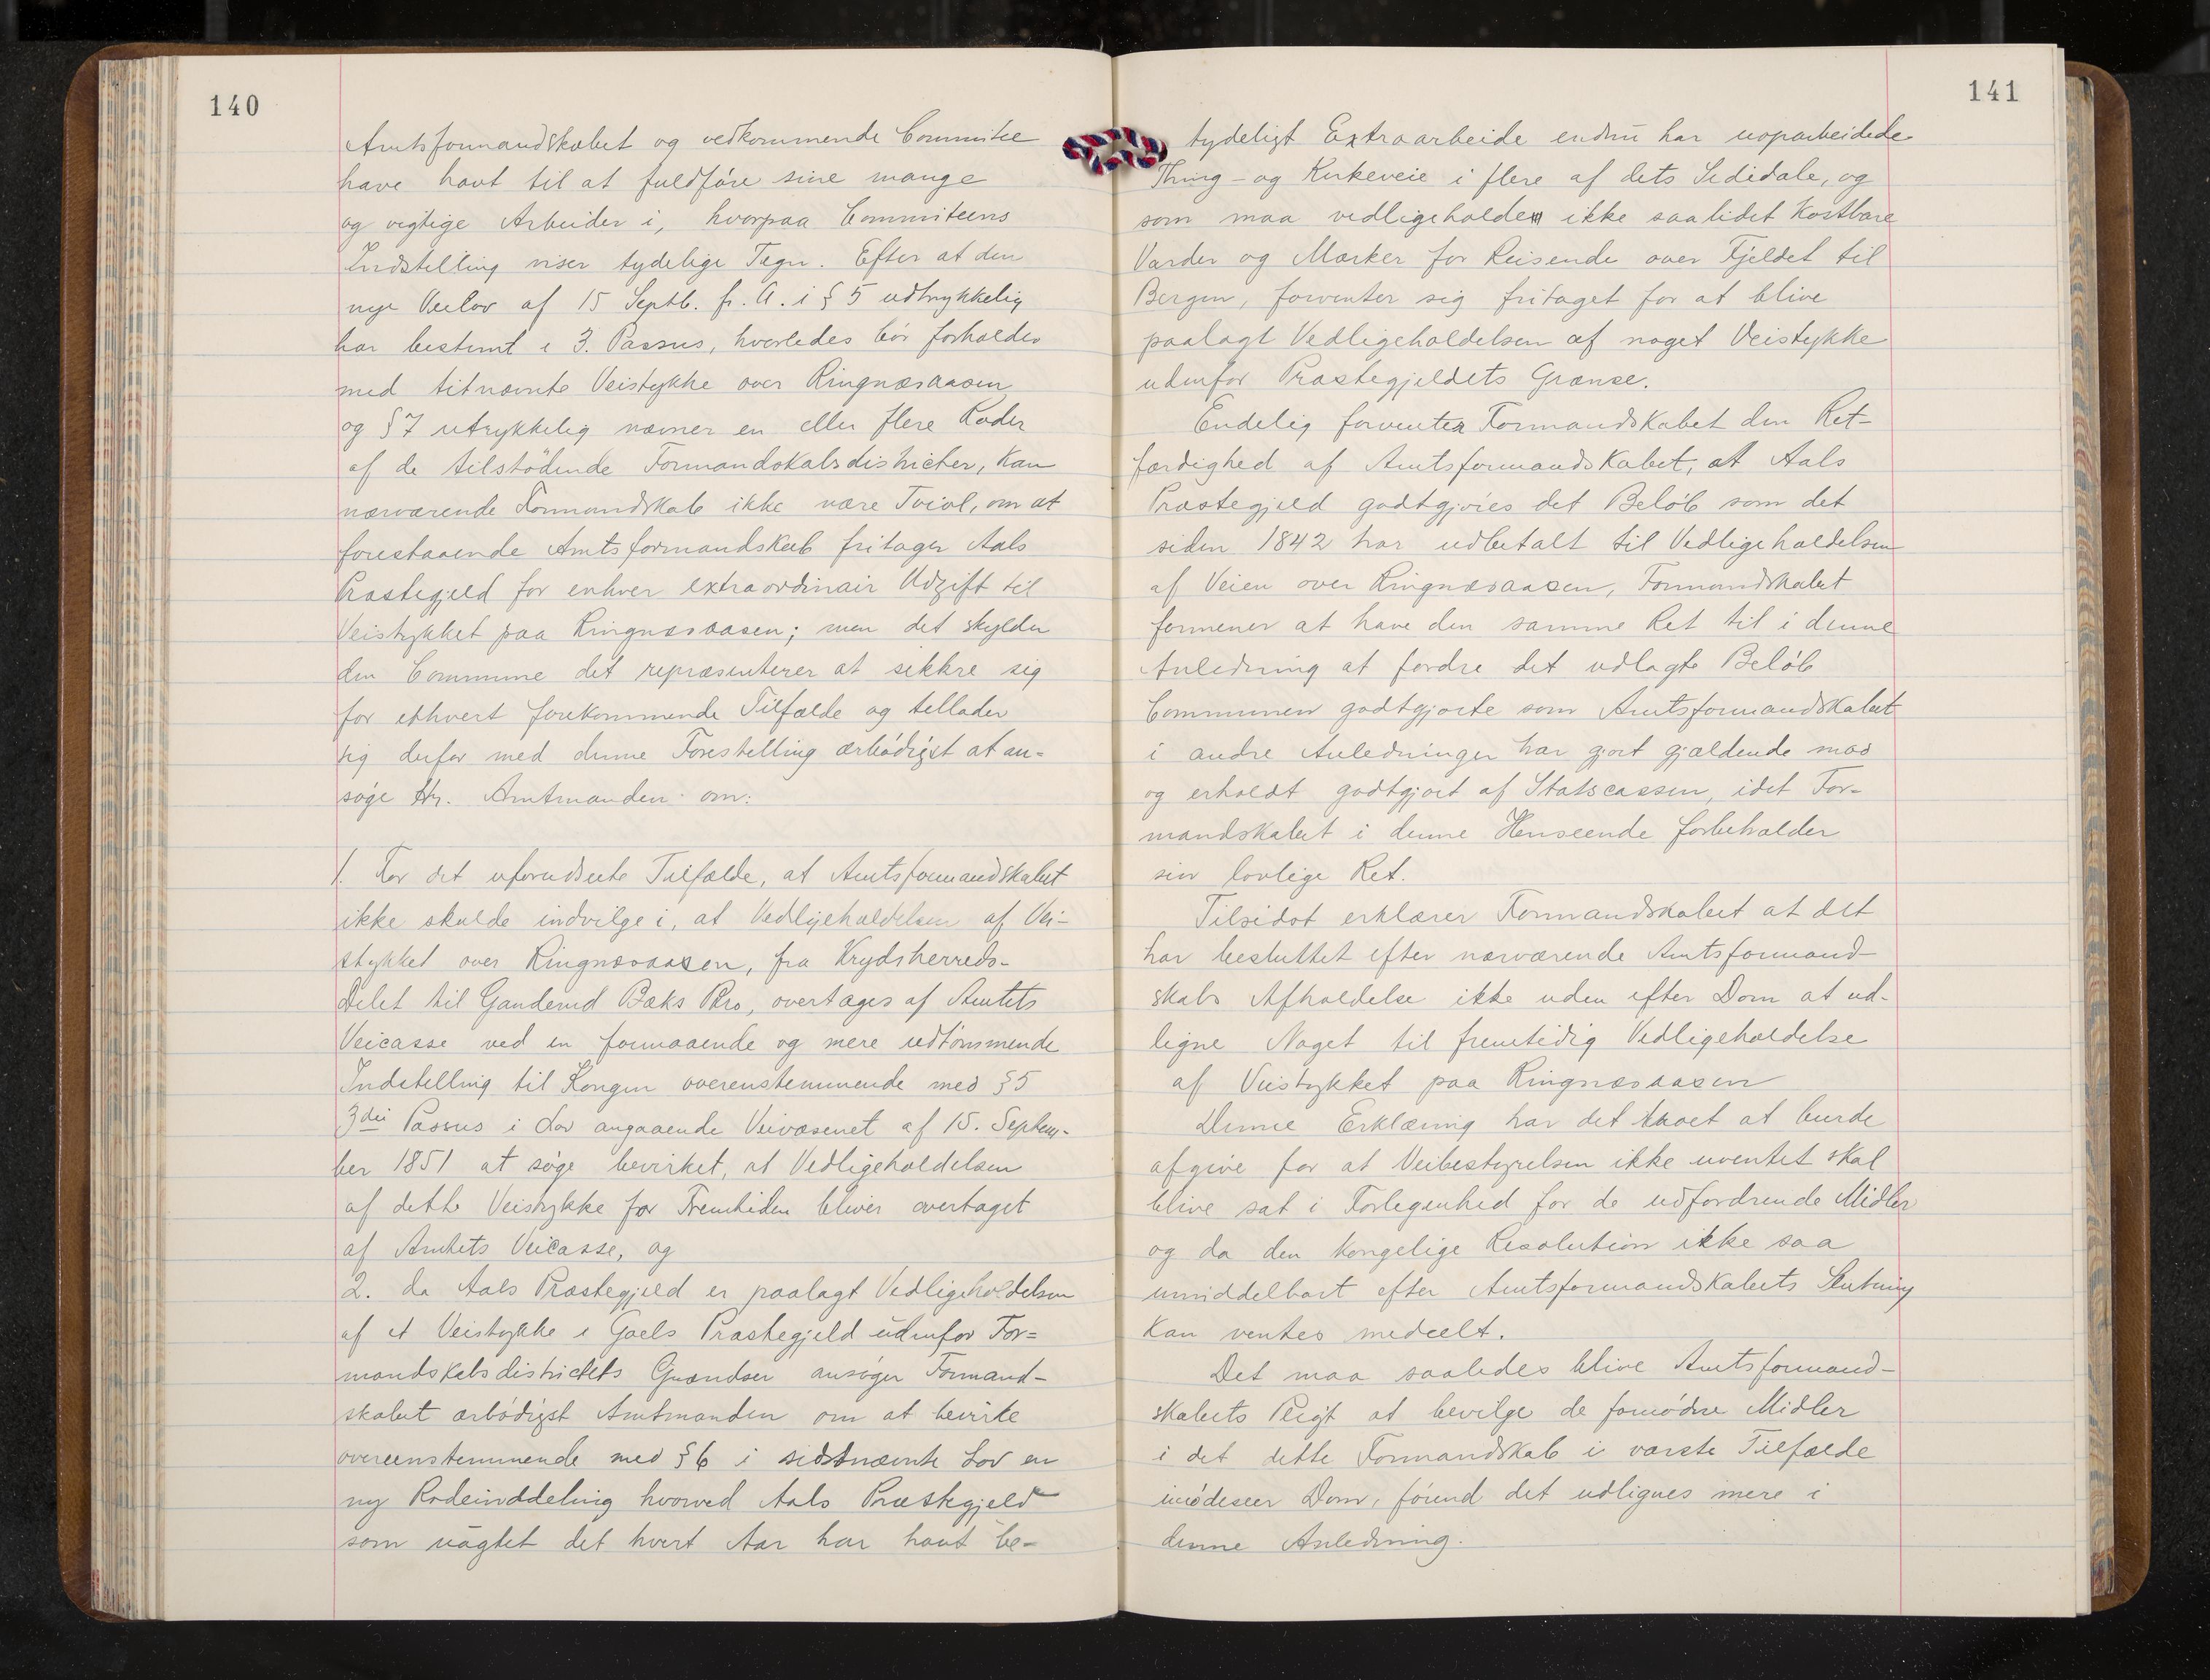 140
Amtsformandskabet og vedkommende Committee
have havt til at fuldføre sine mange
og vigtige Arbeider i, hvorpaa Committeens
Indstilling viser tydelige Tegn. Efter at den
nye Veilov af 15 Septb. f. A. i § 5 udtrykkelig
har bestemt i 3. Passus, hvorledes bör forholdes
med titnævnte Veistykke over Ringnæsaasen
og § 7 utrykkelig nævner en eller flere Roder
af de tilstödende Formandskabsdistricter, kan
nærværende Formandskab ikke være Tvivl, om at
forestaaende Amtsformandskab fritager Aals
Præstegjeld for enhver extraordinair Udgift til
Veistykket paa Ringnæsaasen; men det skylder
den Commune det repræsenterer at sikkre sig
for ethvert forekommende Tilfælde og tellader
sig derfor med denne Forestelling ærbödigst at an=
söge Hr. Amtmanden om:
1. For det uforudseete Tilfælde, at Amtsformandskabet
ikke skulde indvilge i, at Vedligeholdelsen af Vei-
stykket over Ringnæsaasen, fra Krydsherreds-
Delet til Ganderud Bæks Bro, overtages af Amtets
Veicasse ved en formaaende og mere udtömmende
Indstelling til Kongen overenstemmende med § 5
3die Passus i Lov angaaende Veivæsenet af 15. Septem-
ber 1851 at söge bevirket, at Vedligeholdelsen
af dette Veistykke for Fremtiden bliver overtaget
af Amtets Veicasse, og
2. da Aals Præstegjeld er paalagt Vedligeholdelsen
af et Veistykke i Goels Præstegjeld udenfor For=
mandskabsdistrictets Grændser ansöger Formand-
skabet ærbödigst Amtmanden om at bevirke
overeenstemmende med § 6 i sidstnævnte Lov en
ny Rodeinddeling hvorved Aals Præstegjeld
som uagtet det hvert Aar har havt be-
141
tydeligt Extraarbeide endnu har uoparbeidede
Thing- og Kirkeveie i flere af dets Sididale, og
som maa vedligeholde ikke saalidet Kostbare
Varder og Mærker for Reisende over Fjeldet til
Bergen, forventer sig fritaget for at blive
paalagt Vedligeholdelsen af noget Veistykke
udenfor Præstegjeldets Grænse.
Endelig forventer Formandskabet den Ret-
færdighed af Amtsformandskabet, at Aals
Præstegjeld godtgjöres det Belöb som det
siden 1842 har udbetalt til Vedligeholdelsen
af Veien over Ringnæsaasen, Formandskabet
formener at have den samme Ret til i denne
Anledning at fordre det udlagte Belöb
Communen godtgjorte som Amtsformandskabet
i andre Anledninger har gjort gjældende mod
og erholdt godtgjort af Statscassen, idet For=
mandskabet i denne Henseende forbeholder
sin lovlige Ret.
Tilsidst erklærer Formandskabet at det
har besluttet efter nærværende Amtsformand-
skabs Afholdelse ikke uden efter Dom at ud-
ligne Noget til fremtidig Vedligeholdelse
af Veistykket paa Ringnæsaasen
Denne Erklæring har det troet at burde
afgive for at Veibestyrelsen ikke uventet skal
blive sat i Forlegenhed for de udfordrende Midler
og da den Kongelige Resolution ikke saa
umiddelbart efter Amtsformandskabets Slutning
kan ventes meddelt.
Det maa saaledes blive Amtsformand-
skabets Pligt at bevilge de fornödne Midler
i det dette Formandskab i værste Tilfælde
imödeseer Dom, förend det udlignes mere i
denne Anledning.